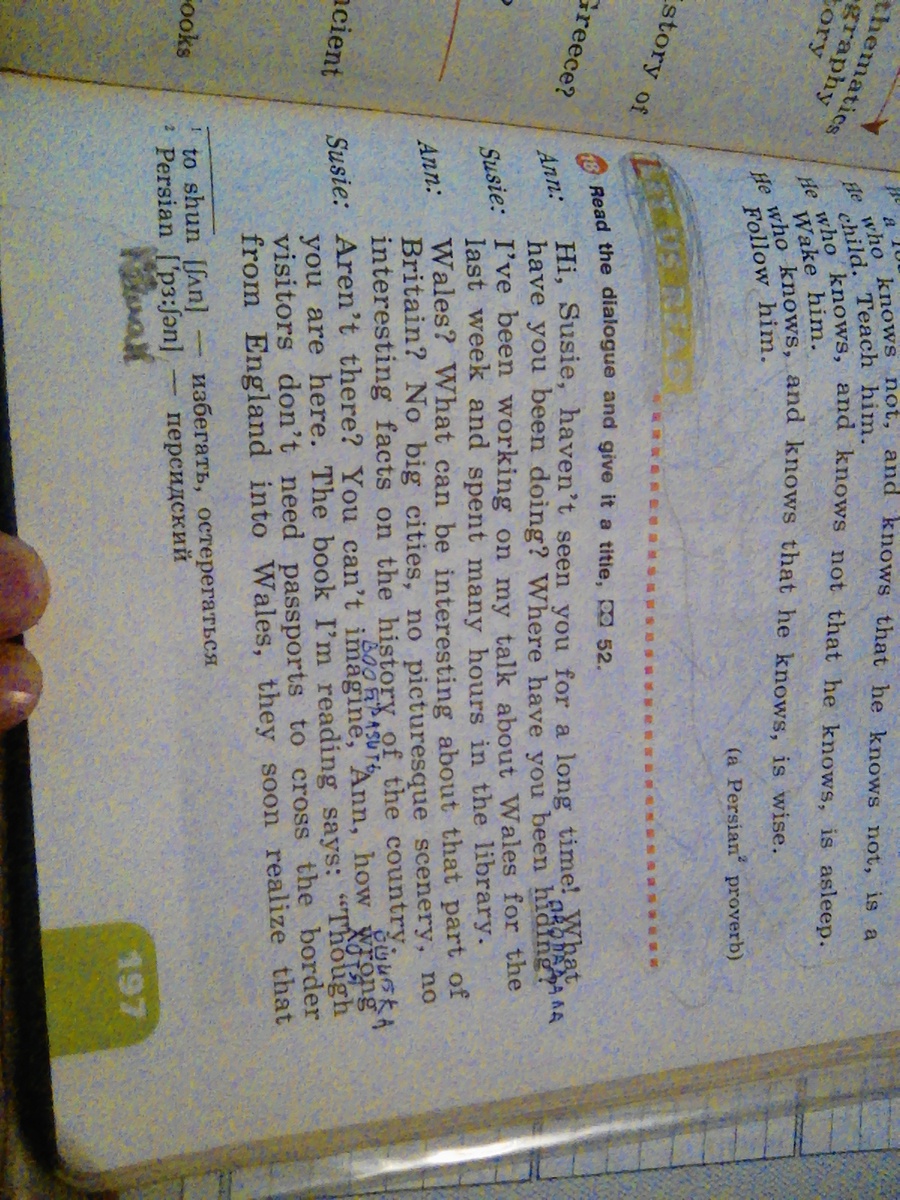 thematics
graphy
tory
story of
Greece?
ncient
ooks
He
who knows not, and knows that he knows not, is a
child. Teach him.
He who knows, and knows not that he knows, is asleep.
Wake him.
He who knows, and knows that he knows, is wise.
Follow him.
(a Persian² proverb)
LET US READ
18 Read the dialogue and give it a title, 52.
Ann: Hi, Susie, haven't seen you for a long time! What
have you been doing? Where have you been hiding?
Susie: I've been working on my talk about Wales for the
last week and spent many hours in the library.
Ann: Wales? What can be interesting about that part of
Britain? No big cities, no picturesque scenery, no
interesting facts on the history of the country.
Susie: Aren't there? You can't imagine, Ann, how wrong
you are here. The book I'm reading says: "Though
visitors don't need passports to cross the border
from England into Wales, they soon realize that
¹ to shun [ʃʌn] — избегать, остерегаться
² Persian [ˈpɜːʃən] — персидский
197